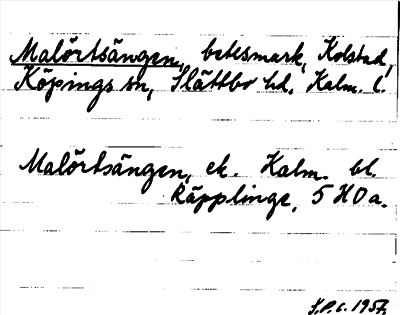 Malörtsängen, betesmark, Kolstad,
Köpings sn, Slättbo hd, Kalm. l.
Malörtsängen, ek. Kalm. bl.
Räpplinge, 5 H 0 a.
S.P.c. 1957.